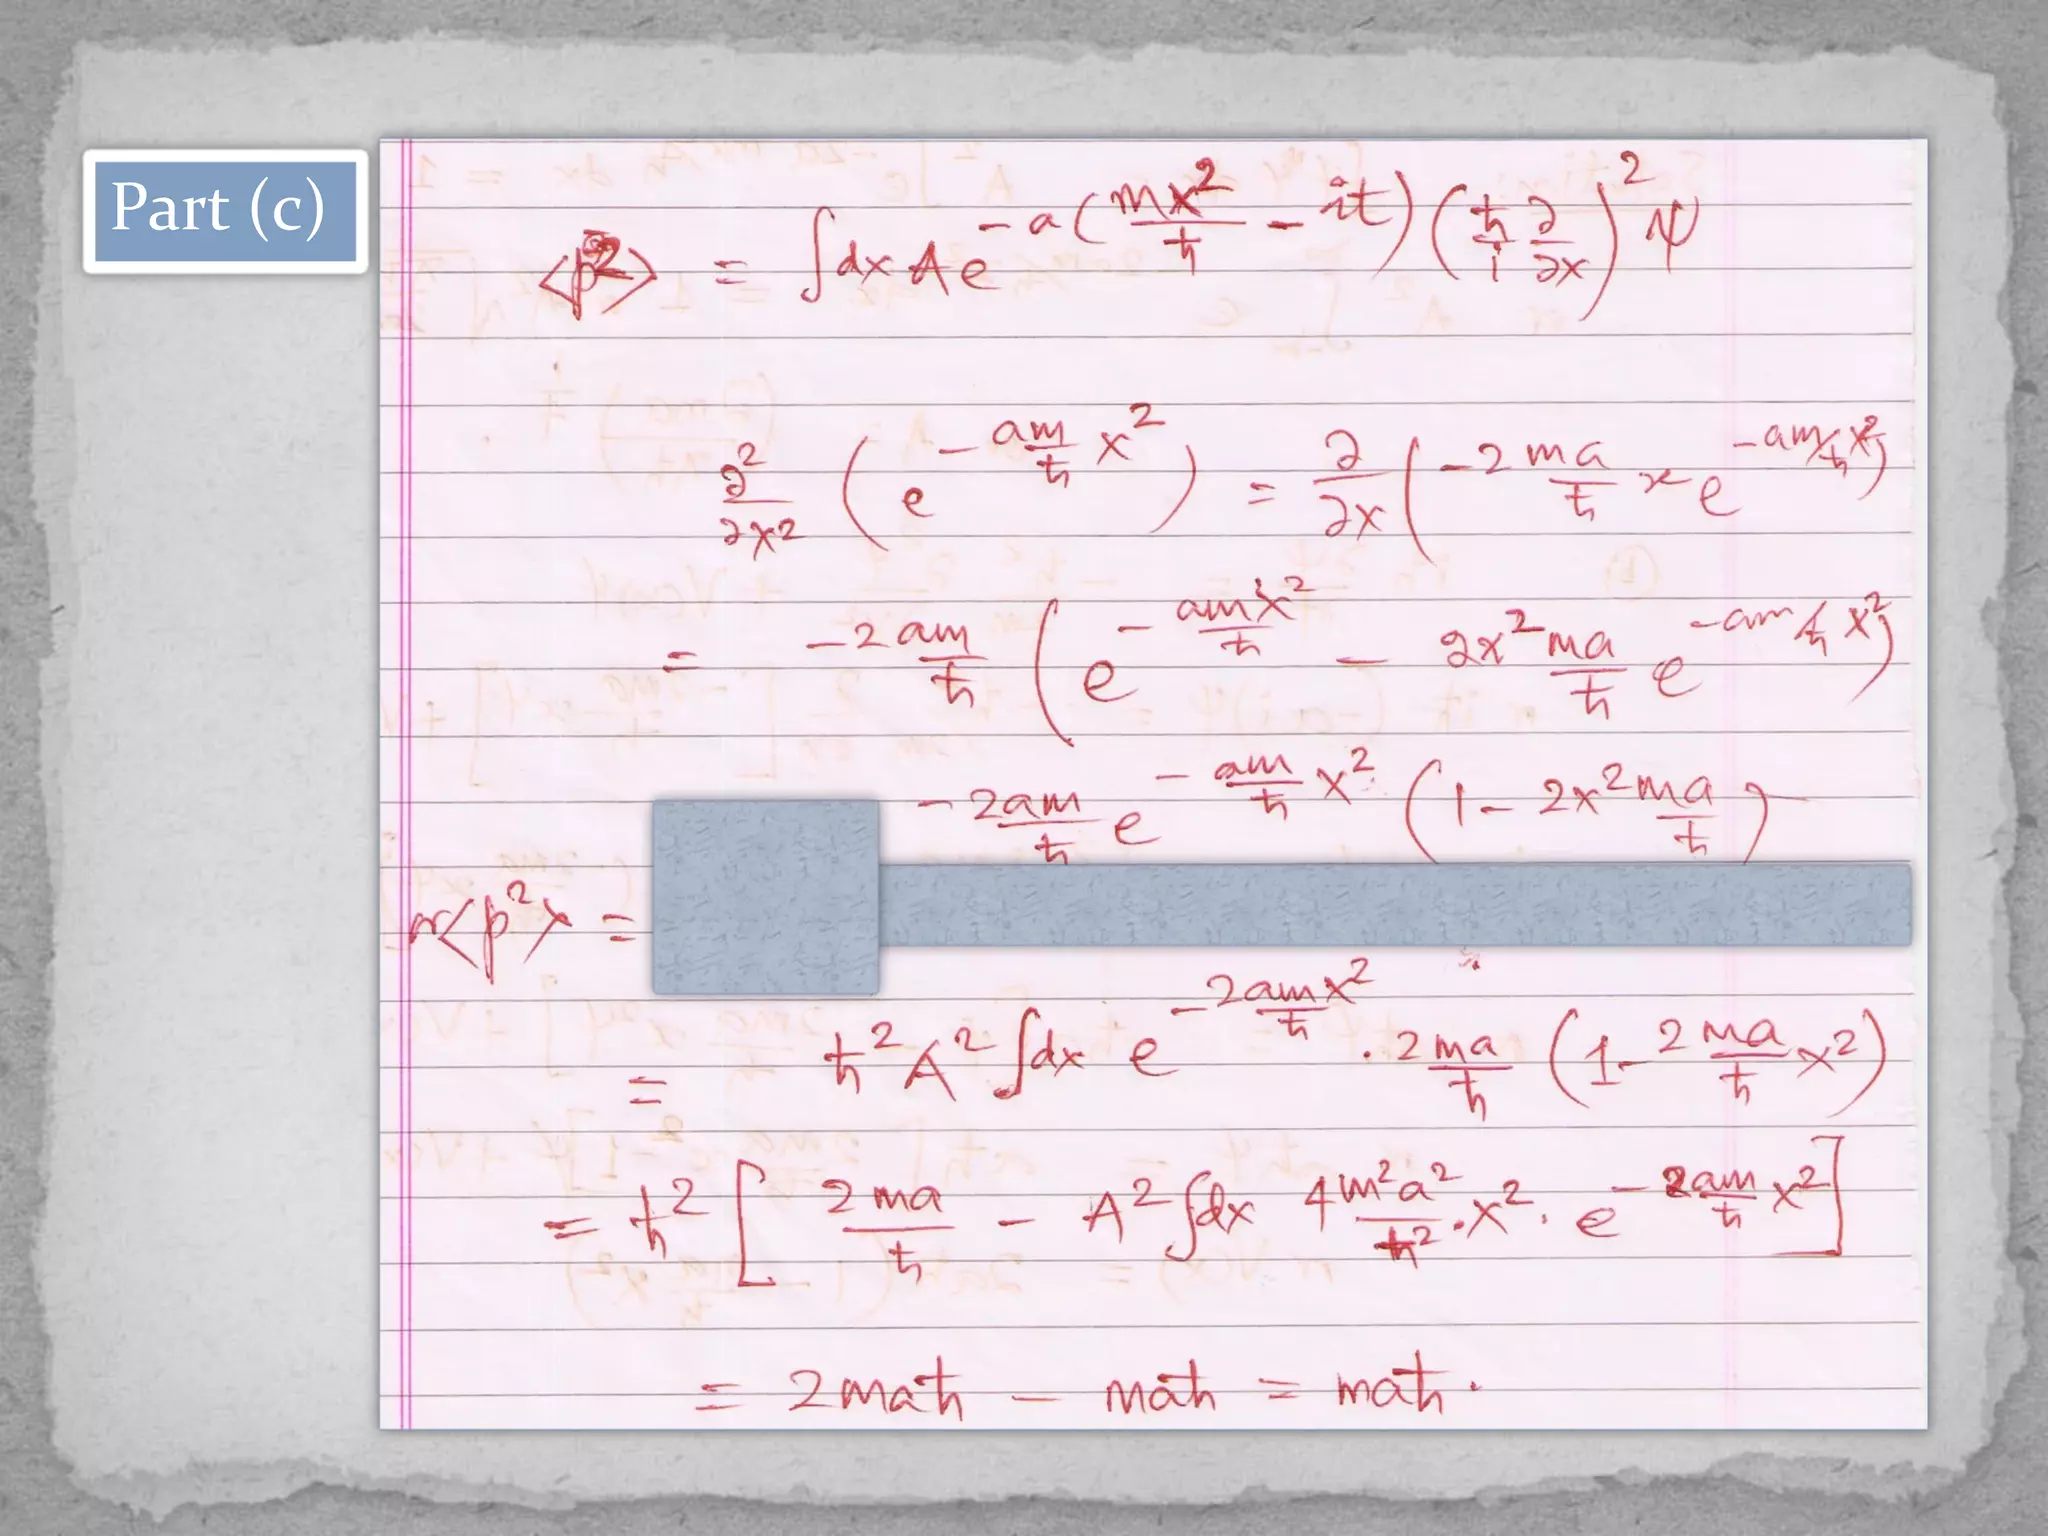 Part (c)
<p²> = ∫dx A e^{-a(mx²/ħ - it)} (ħ/i ∂/∂x)² ψ
∂²/∂x² (e^{-am/ħ x²}) = ∂/∂x (-2 ma/ħ x e^{-am/ħ x²})
= -2am/ħ (e^{-amx²/ħ} - 2x² ma/ħ e^{-am/ħ x²})
-2am/ħ e^{-am/ħ x²} (1 - 2x² ma/ħ)
<p²> =
= ħ² A² ∫dx e^{-2amx²/ħ} · 2ma/ħ (1 - 2ma/ħ x²)
= ħ² [2ma/ħ - A² ∫dx 4m²a²/ħ² · x² · e^{-2am/ħ x²}]
= 2maħ - maħ = maħ.